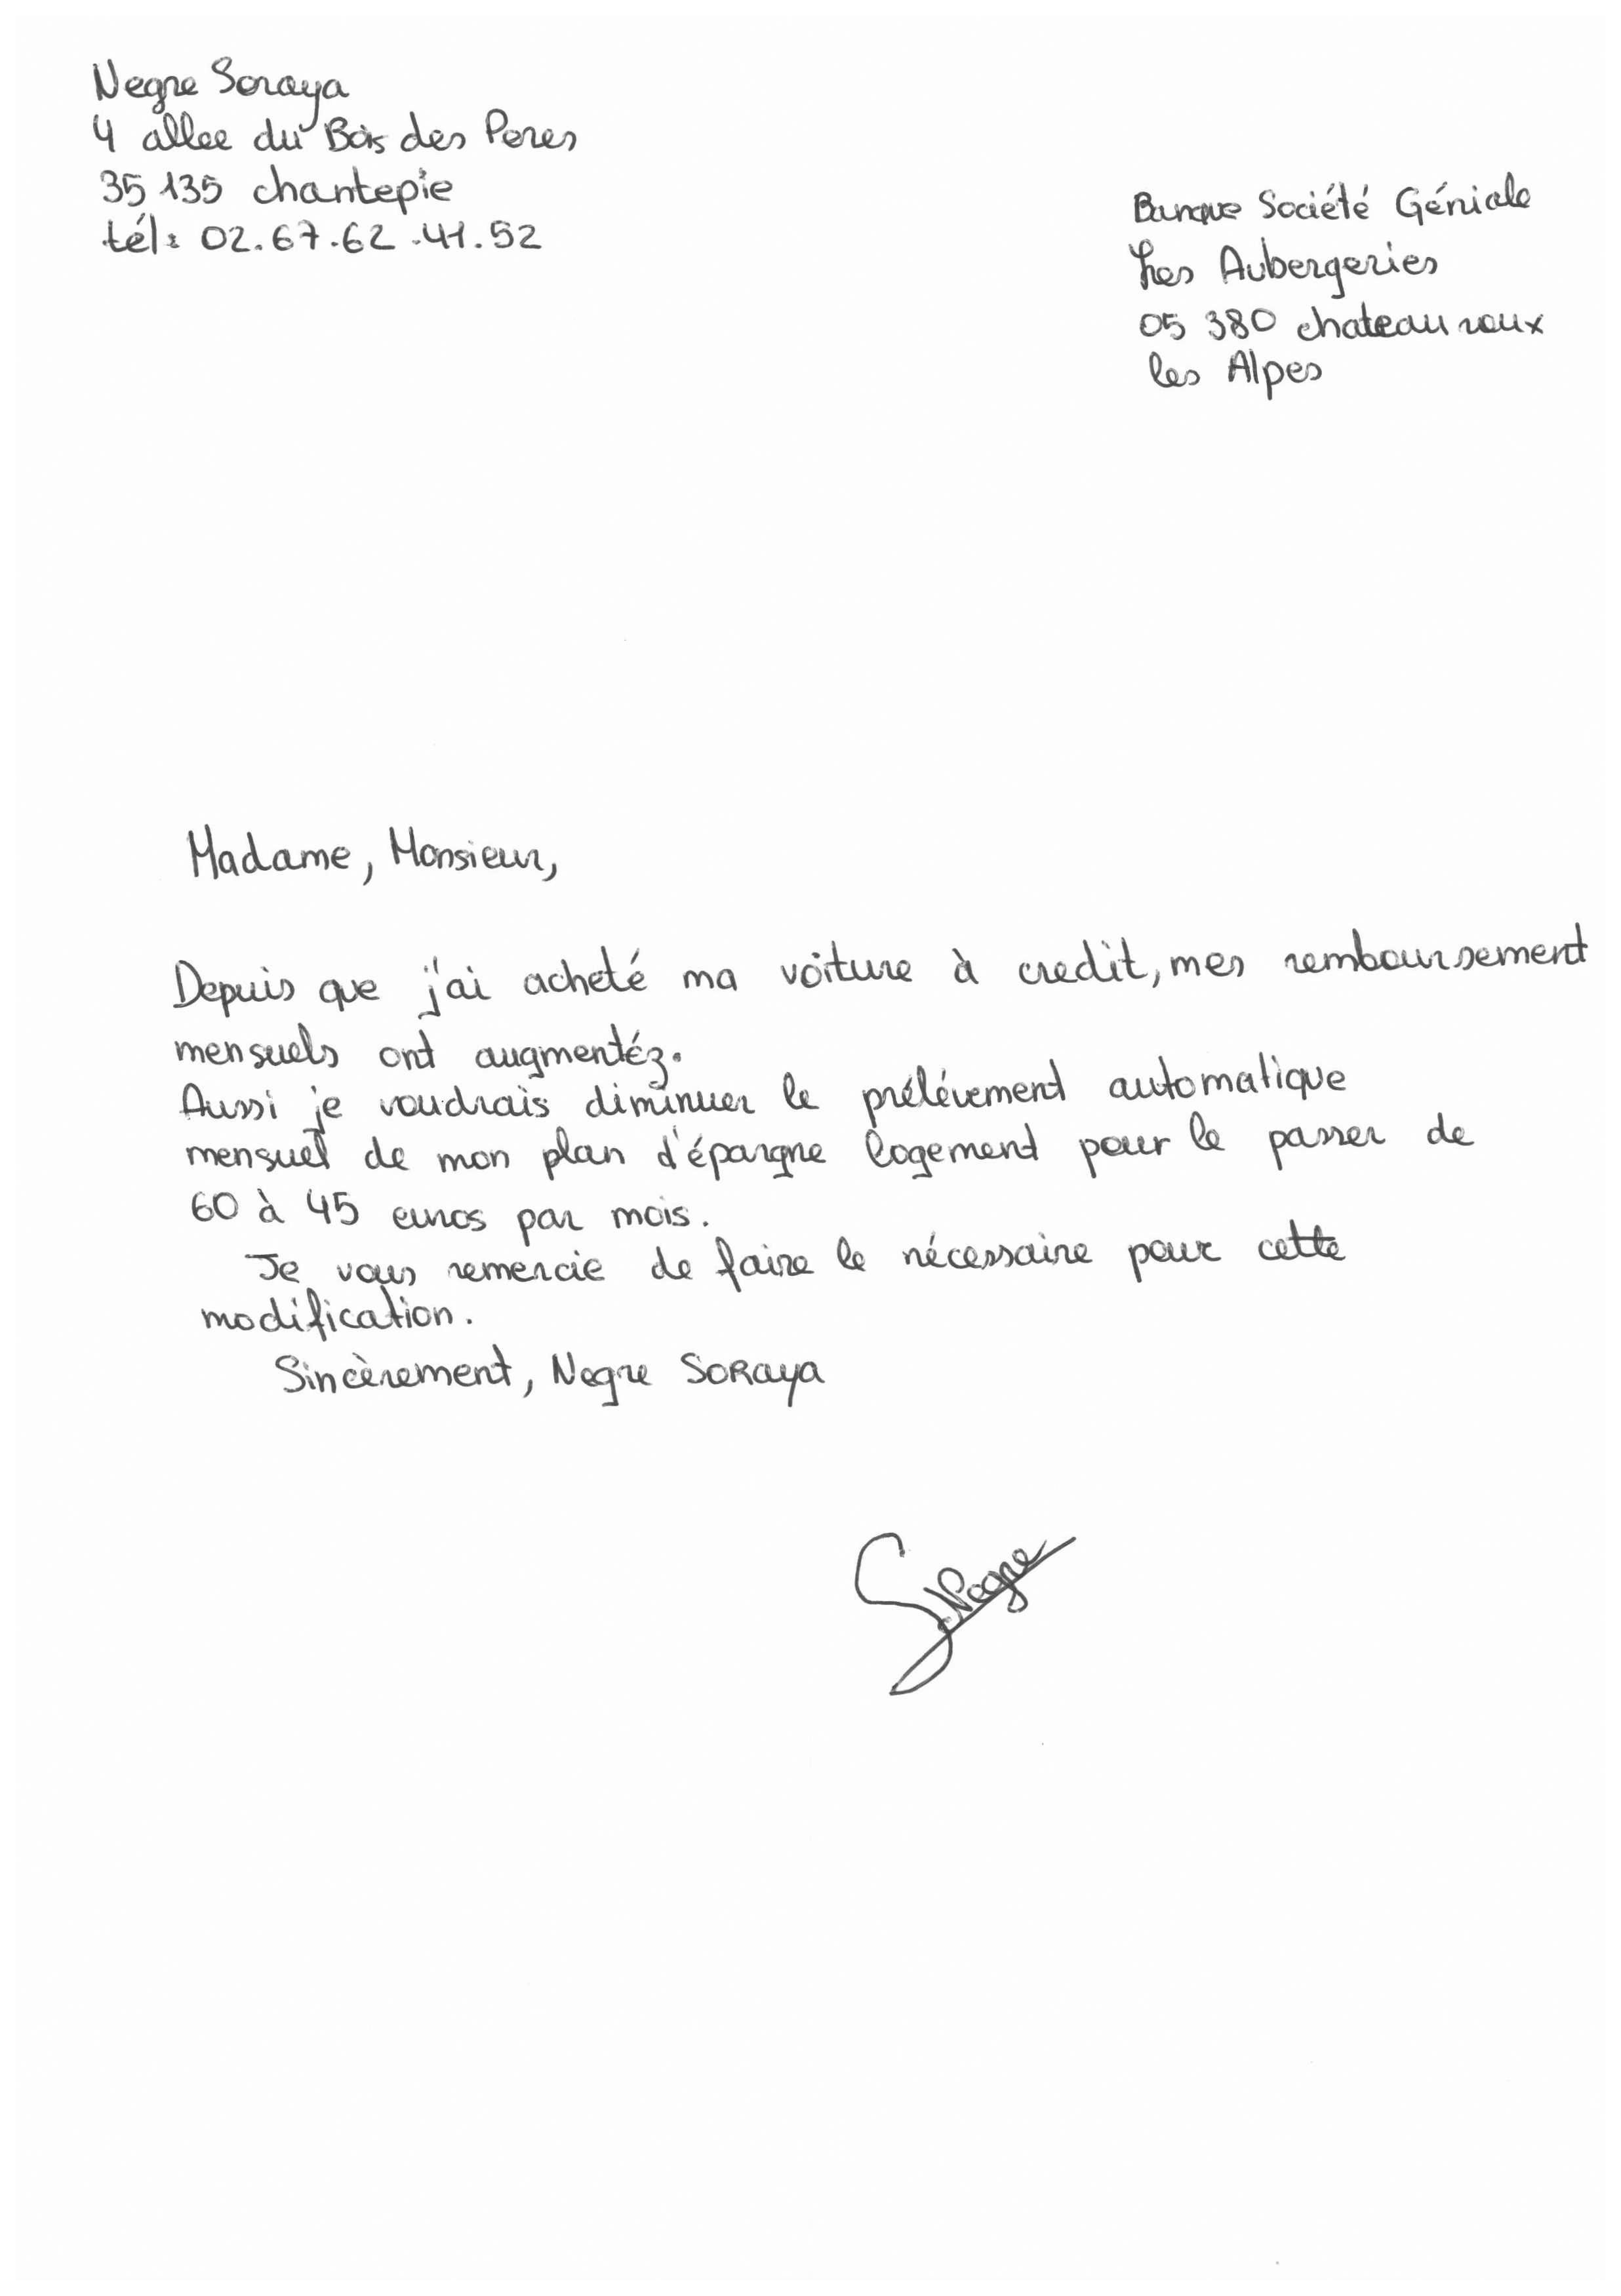 Negre Soraya
4 allee du Bois des Peres
35 135 chantepie
tél : 02.67.62.41.52
Banque Société Géniale
Les Aubergeries
05 380 chateau roux
les Alpes
Madame, Monsieur,
Depuis que j'ai acheté ma voiture à credit, mes remboursement
mensuels ont augmentéz.
Aussi je voudrais diminuer le prélévement automatique
mensuel de mon plan d'épargne logement pour le passer de
60 à 45 euros par mois.
Je vous remercie de faire le nécessaire pour cette
modification.
Sincèrement, Negre SORaya
S. Negre